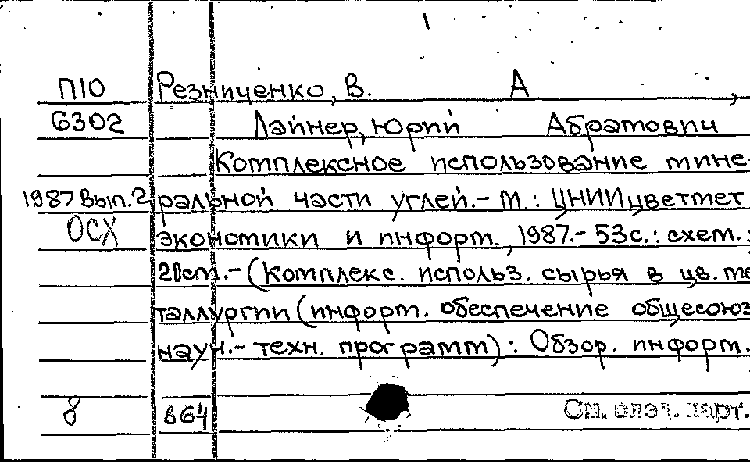 П10 Резниченко, В. А
6302 Лайнер, Юрий Абрамович
Комплексное использование мине-
1987 Вып.2 ральной части углей.- М.: ЦНИИцветмет
ОСХ экономики и информ., 1987.- 53с.: схем.;
20см.- (Комплекс. использ. сырья в цв. ме
таллургии (информ. обеспечение общесоюз
науч.- техн. программ): Обзор. информ.
8 В64 См. след. карт.